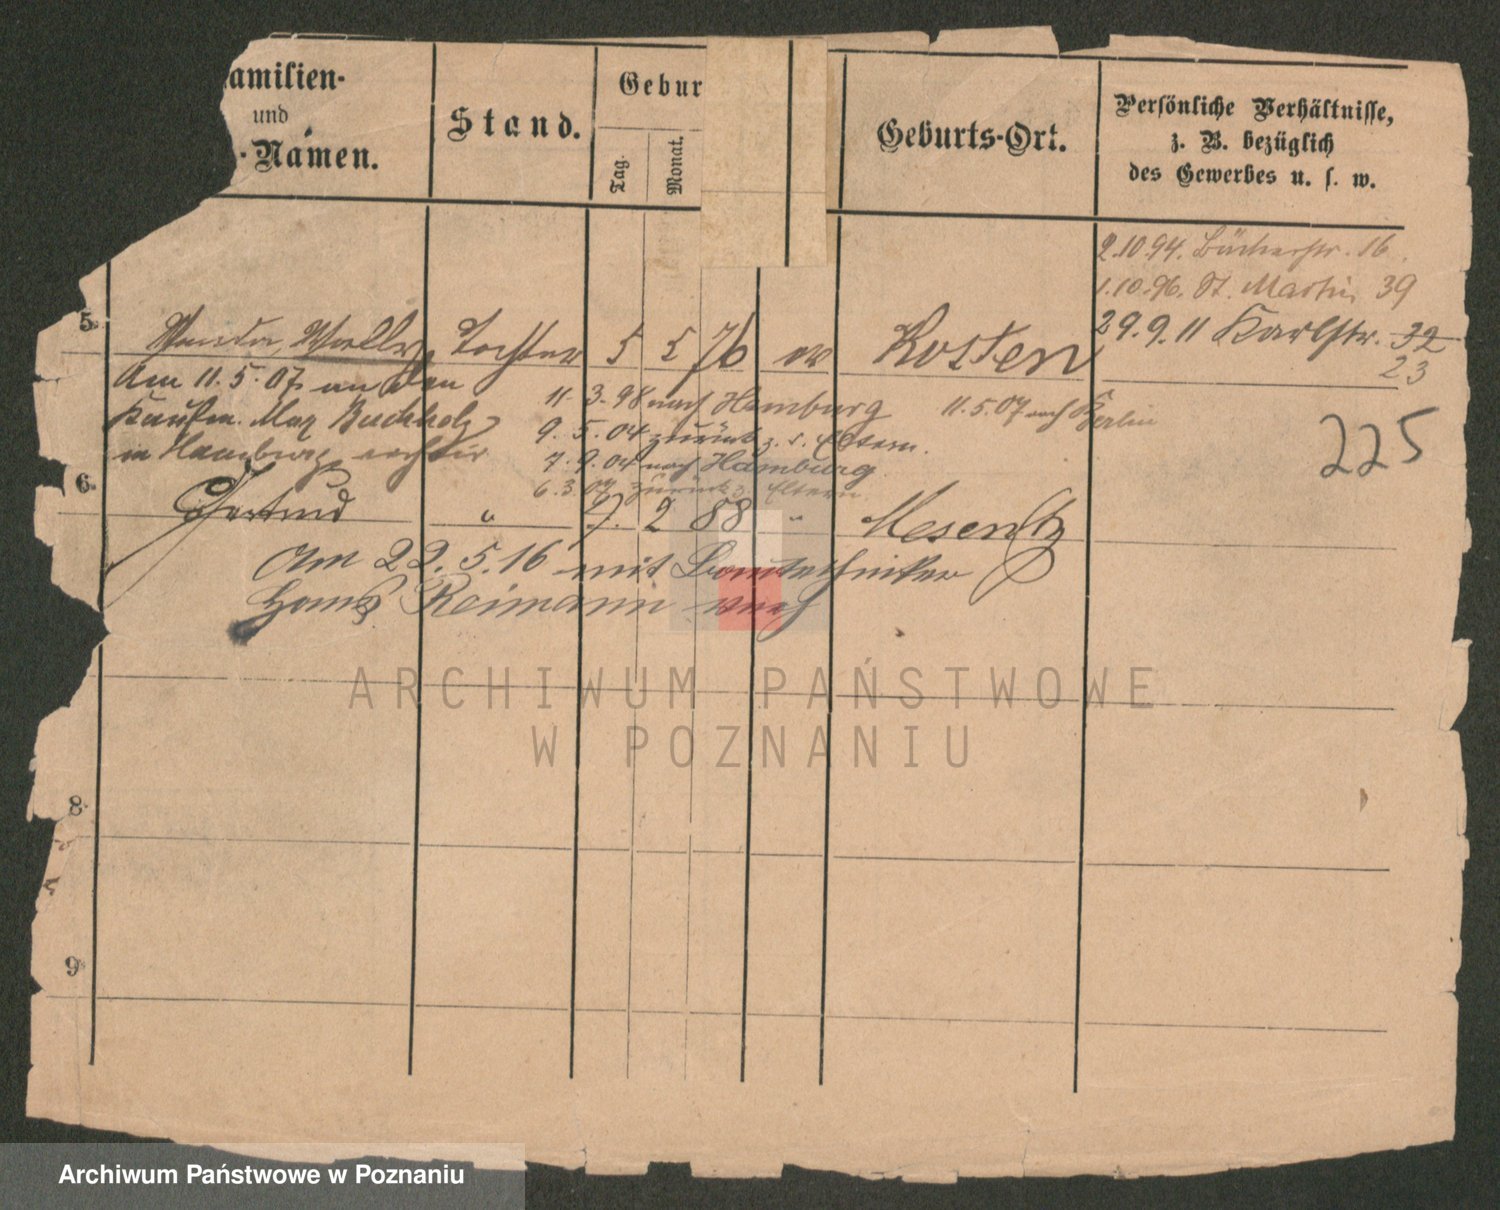 amilien-
und
-Namen.
Stand.
Gebur
Tag.
Monat.
Geburts-Ort.
Persönliche Verhältnisse,
z. B. bezüglich
des Gewerbes u. s. w.
2.10.94. Bückerstr. 16.
1.10.96. St. Martin 39
29.9.11 Karlstr. 32
23
5. Wanda, Tochter 5 5 76 ev Kosten
Am 11.5.07 an den
Kaufm. Max Buchholz
in Hamburg
11.3.98 nach Hamburg
11.5.07 nach Berlin
9.5.04 zurück z. d. Eltern.
7.9.04 nach Hamburg
6.3.07 zurück z. Eltern.
225
6. Gertrud " 7. 2 88 " Meseritz
Am 22.5.16 mit Bautechniker
Hans Reimann verh
8.
9.
ARCHIWUM PAŃSTWOWE
W POZNANIU
Archiwum Państwowe w Poznaniu